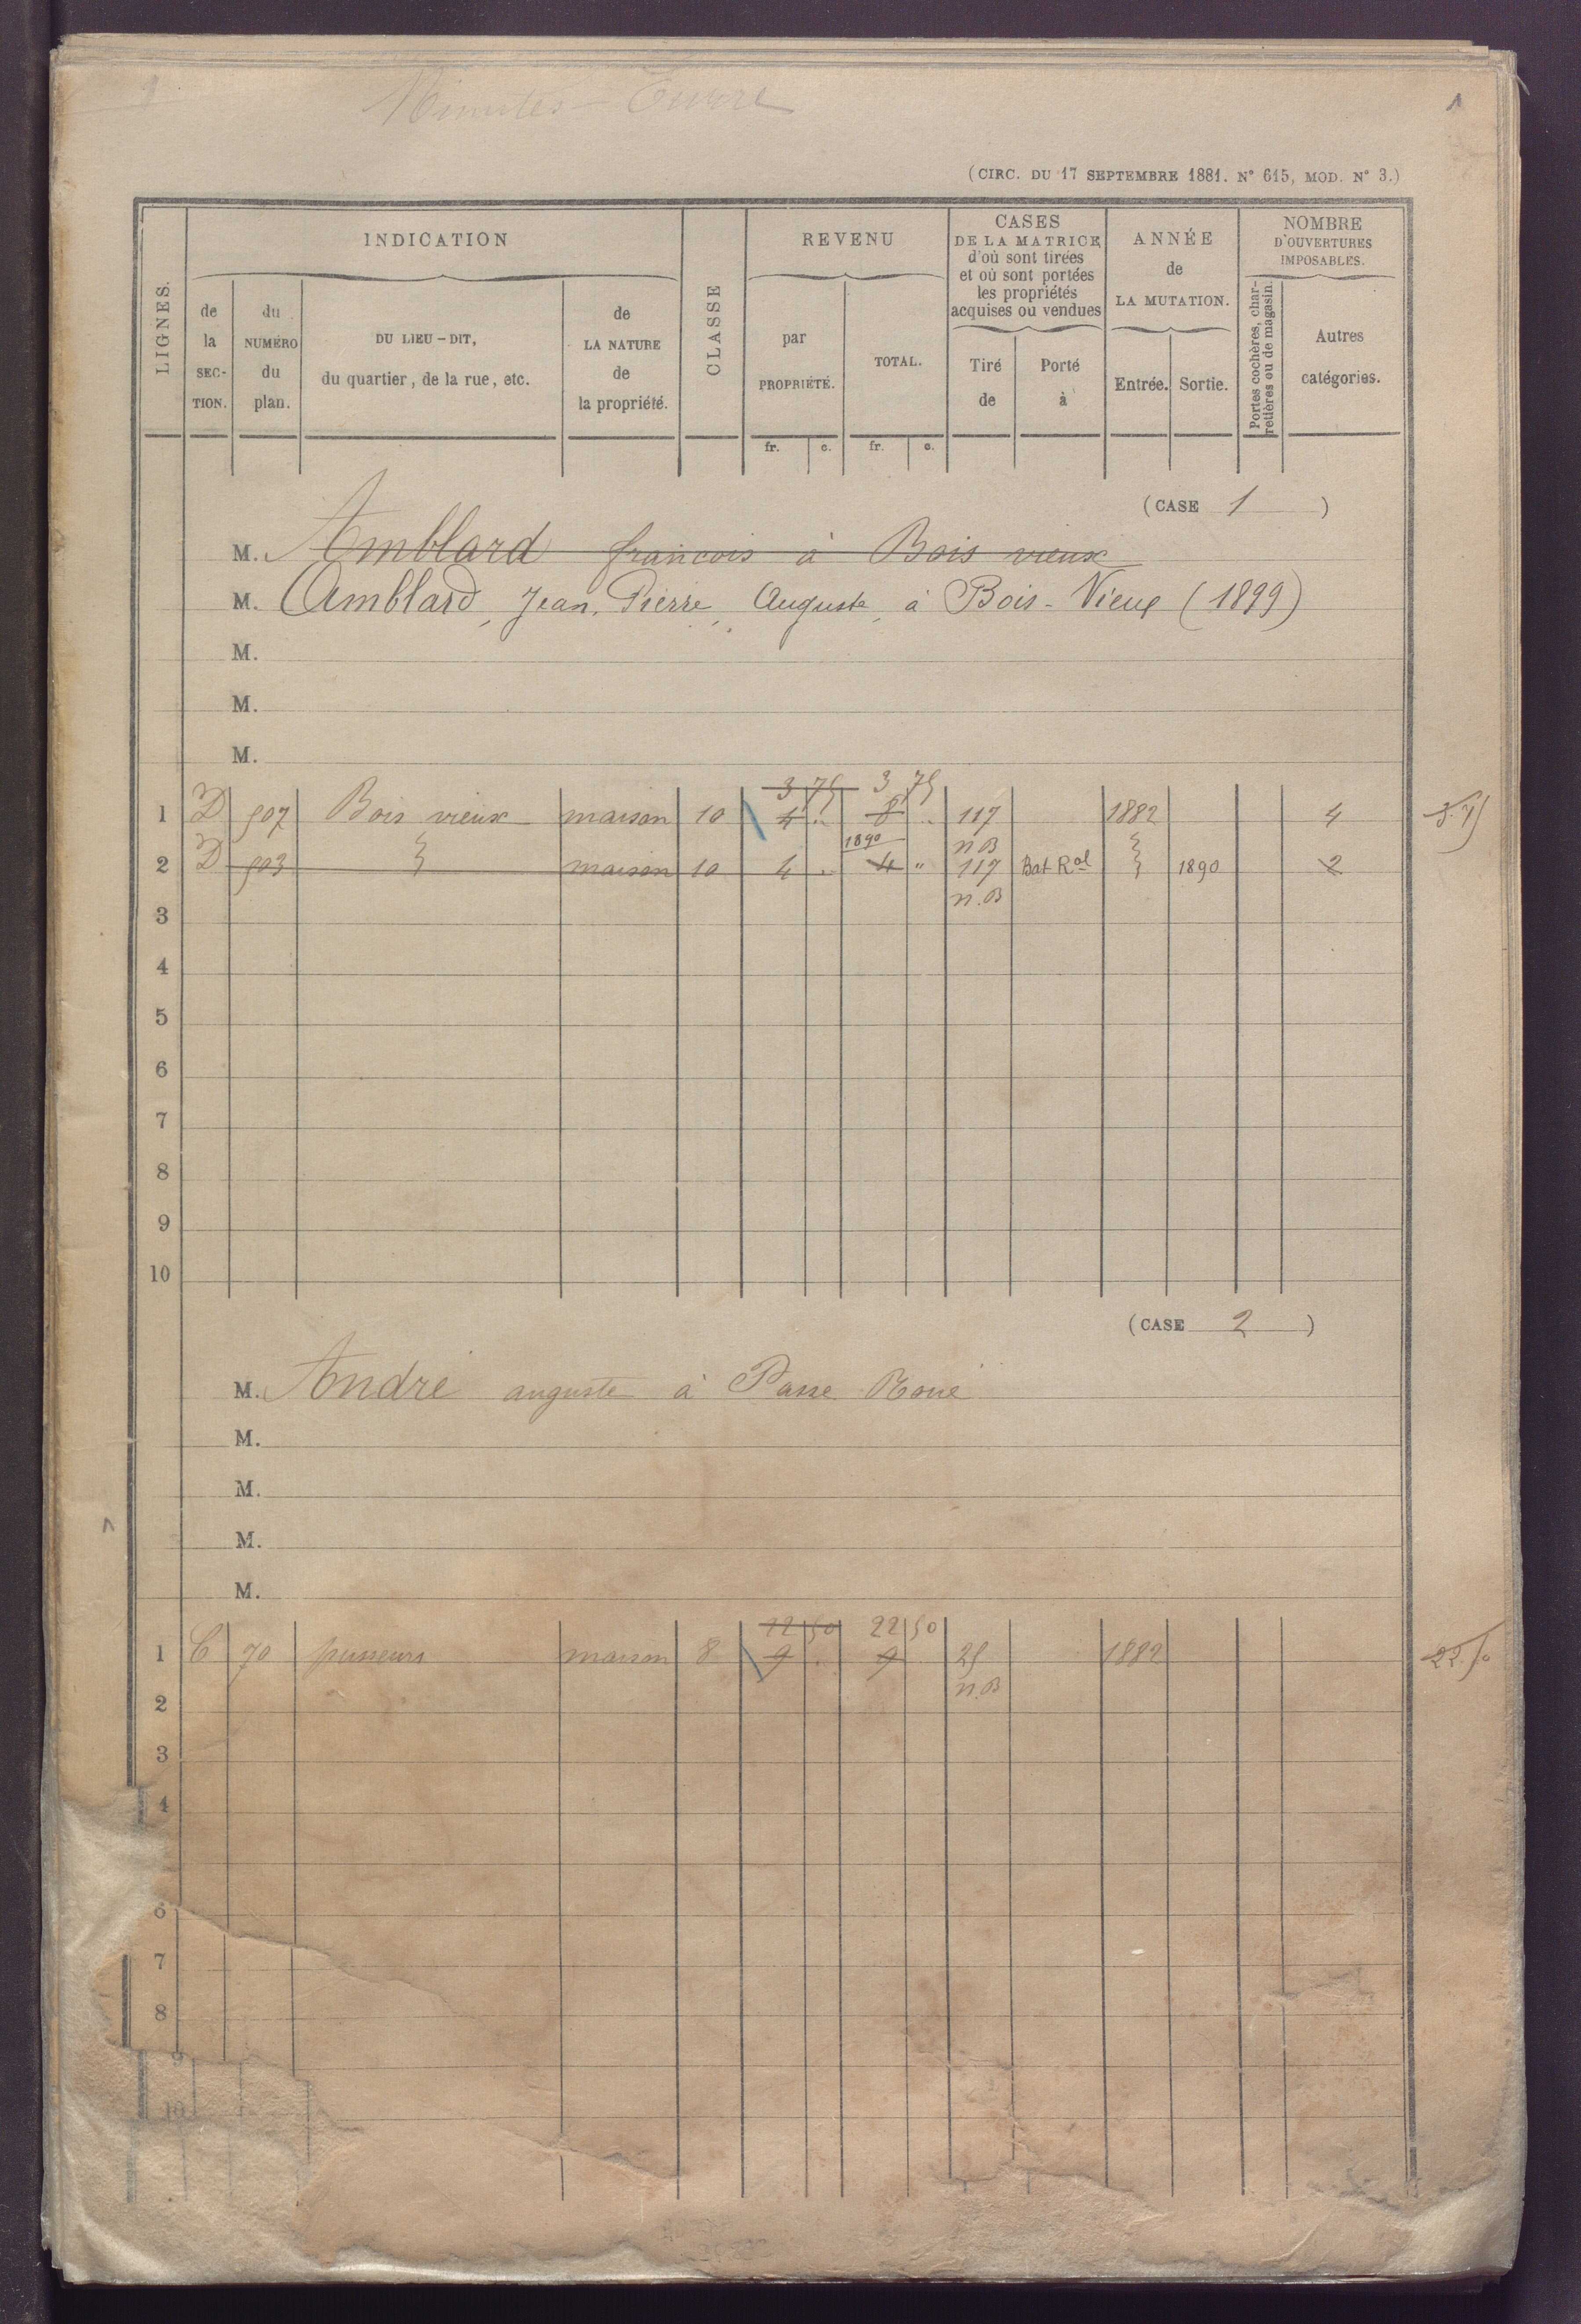 1
(CIRC. DU 17 SEPTEMBRE 1881. N° 615, MOD. N° 3.)
LIGNES.
INDICATION
de la SEC-TION.
du NUMÉRO du plan.
DU LIEU-DIT, du quartier, de la rue, etc.
de LA NATURE de la propriété.
CLASSE
REVENU
par PROPRIÉTÉ.
TOTAL.
CASES DE LA MATRICE d'où sont tirées et où sont portées les propriétés acquises ou vendues
Tiré de
Porté à
ANNÉE de LA MUTATION.
Entrée.
Sortie.
NOMBRE D'OUVERTURES IMPOSABLES.
Portes cochères, char-retières ou de magasin.
Autres catégories.
fr. c. fr. c.
(CASE 1 )
M. Amblard francois à Bois vieux
M. Amblard, Jean, Pierre, Auguste, à Bois-Vieux (1899)
M.
M.
M.
3 75 3 75
1 D 507 Bois vieux maison 10 4 .. 8 .. 117 1882 4
1890 n.B
2 D 503 maison 10 4 .. 4 " 117 Bat Ral 1890 2
n.B
3
4
5
6
7
8
9
10
(CASE 2 )
M. André auguste à Passe
M.
M.
M.
M.
22 50 22 50
1 C 70 maison 8 9 . 9 25 1882 22.50
n.B
2
3
4
6
7
8
10